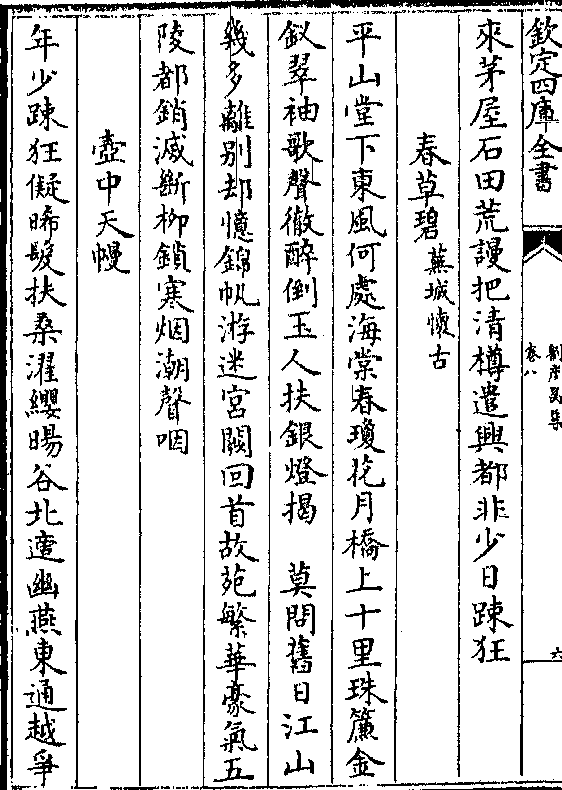 欽定四庫全書
劉彥昺集
卷八
六
來茅屋石田荒謾把清樽遣興都非少日踈狂
春草碧 蕪城懷古
平山堂下東風何處海棠春瓊花月橋上十里珠簾金
釵翠袖歌聲徹醉倒玉人扶銀燈揭 莫問舊日江山
幾多離别却憶錦帆游迷宮闕回首故苑繁華豪氣五
陵都銷滅斷柳鎖寒烟潮聲咽
壺中天幔
年少踈狂儗晞髮扶桑濯纓暘谷北遊幽燕東通越爭